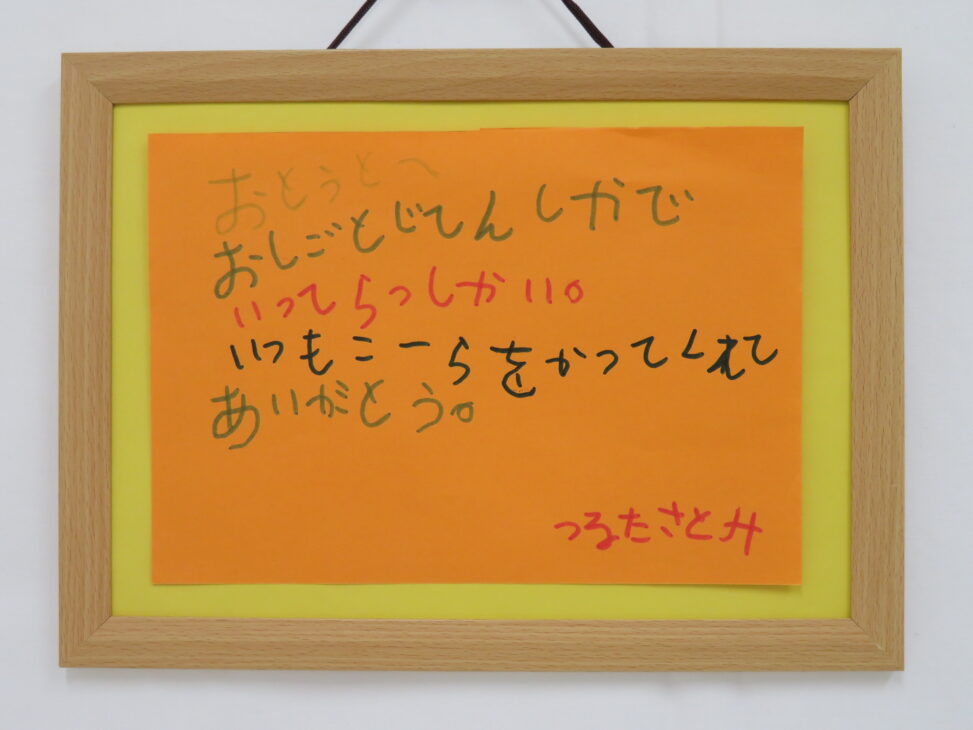 おとうとへ
おしごとじてんしかで
いってらっしかいい。
いつもこーらをかってくれて
あいがとう。
つるたさとみ